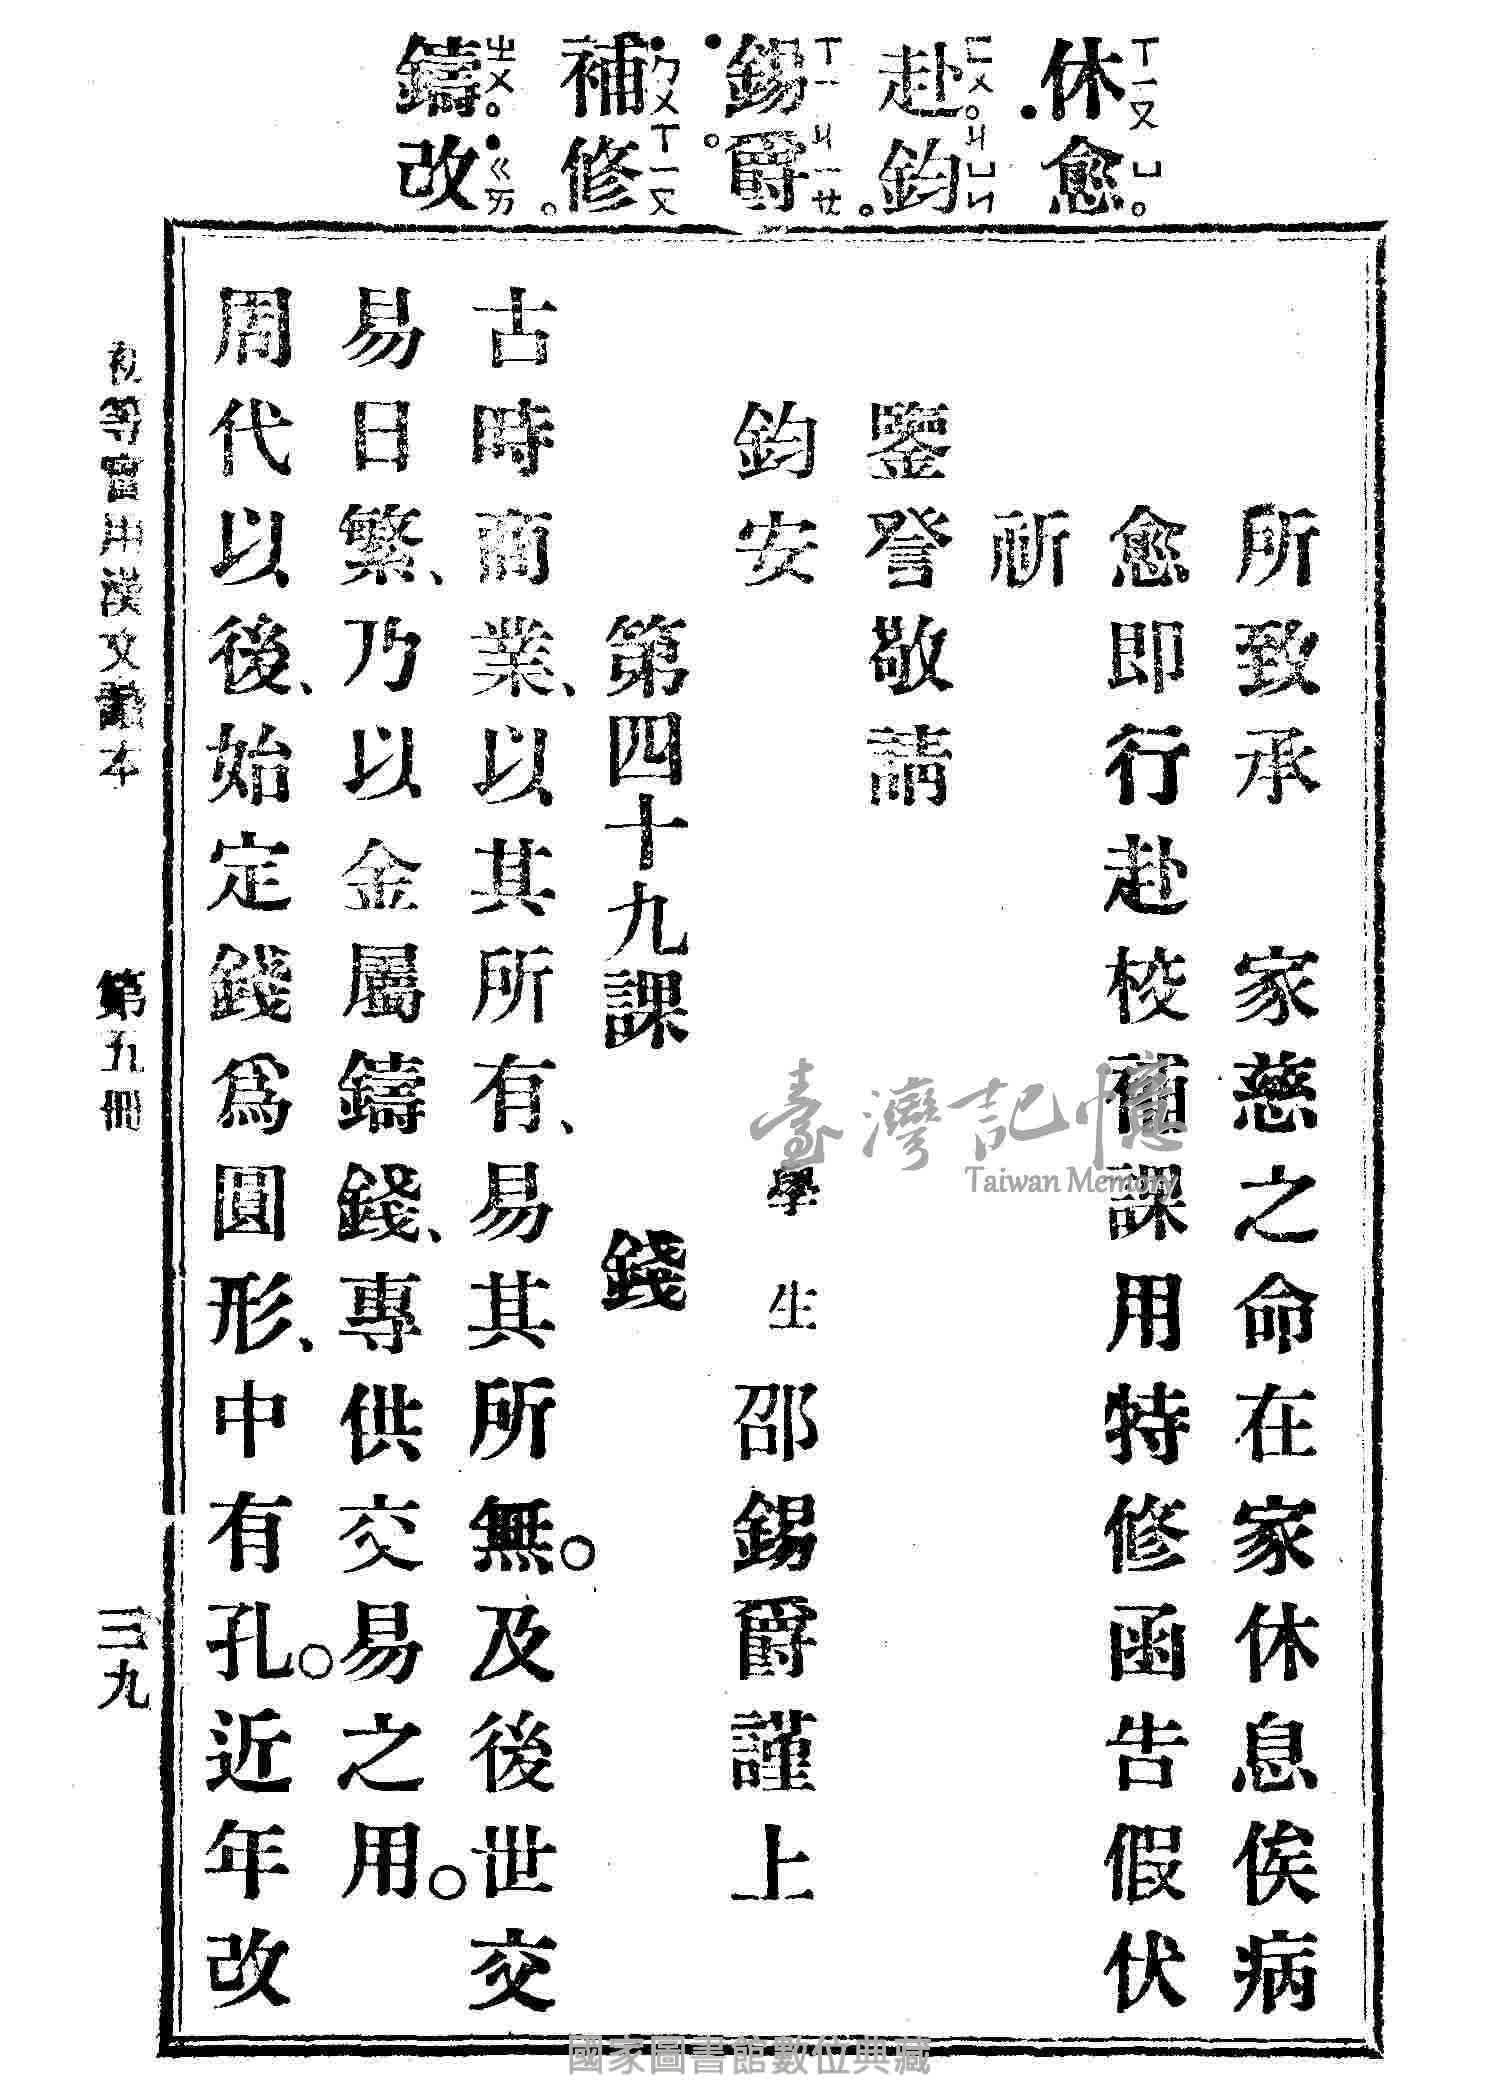 休ㄒㄧㄡ 愈ㄩ。
赴ㄈㄨ。鈞ㄐㄩㄣ。
錫ㄒㄧ 爵ㄐㄧㄝ
補ㄅㄨ 修ㄒㄧㄡ。
鑄ㄓㄨ。改ㄍㄞ
所致承　家慈之命在家休息俟病
愈即行赴校補課用特修函告假伏
祈
鑒詧敬請
鈞安　學生　邵錫爵謹上
第四十九課　錢
古時商業、以其所有、易其所無。及後世交
易日繁、乃以金屬鑄錢、專供交易之用。
周代以後、始定錢爲圓形、中有孔。近年改
初等實用漢文讀本　第五冊　三九
臺灣記憶
Taiwan Memory
國家圖書館數位典藏